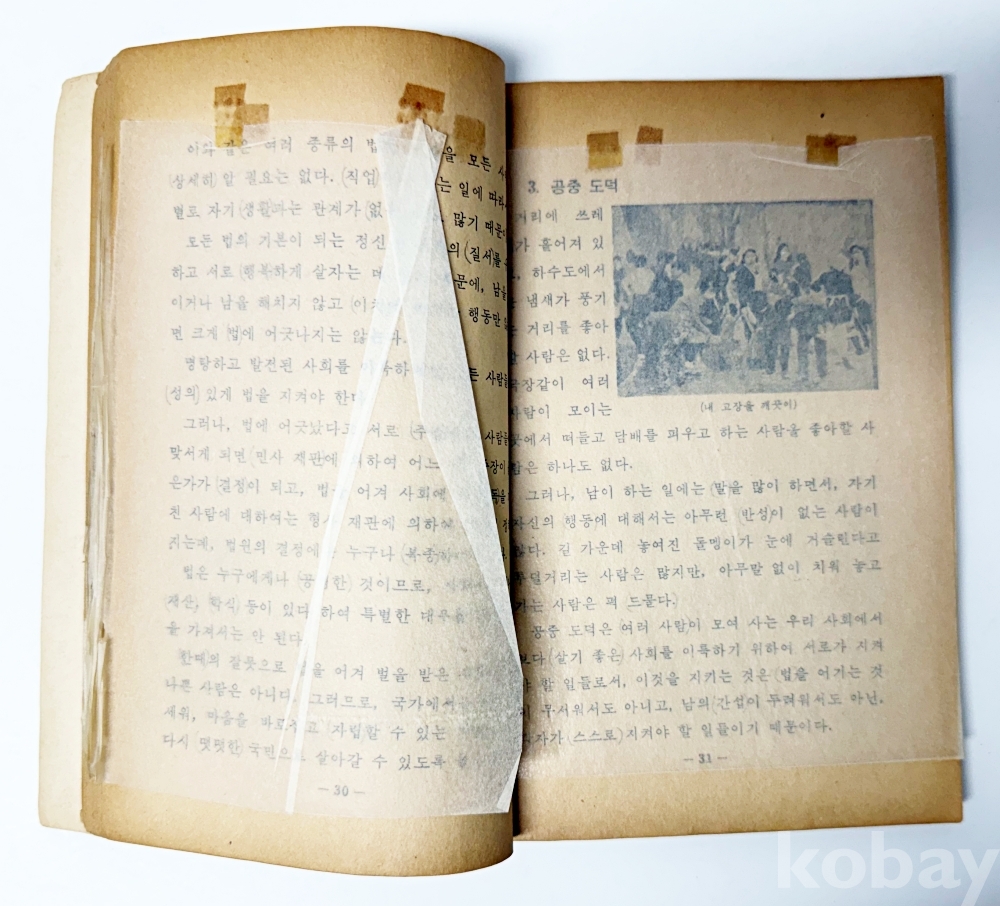 이와 같은 여러 종류의 법 을 모든
(상세히) 알 필요는 없다. (직업) 는 일에 따라
별로 자기 (생활)과는 관계가 (없 많기 때문
모든 법의 기본이 되는 정신 의 (질서)를
하고 서로 (행복)하게 살자는 데 문에, 남을
이거나 남을 해치지 않고 (이 행동만
면 크게 (법)에 어긋나지는 않는다.
명랑하고 발전된 사회를 사람들
(성의) 있게 법을 지켜야 한다
그러나, 법에 어긋났다고 서로 사람들
맞서게 되면 (민사 재판에 의하여 어느
은가가 (결정)이 되고, 법을 어겨 사회에
친 사람에 대하여는 형사 재판에 의하여
지는데, 법원의 결정에는 누구나 (복종)
법은 누구에게나 (공평한) 것이므로,
재산, 학식) 등이 있다 하여 특별한 대우
을 가져서는 안 된다
한때의 잘못으로 법을 어겨 벌을 받은
나쁜 사람은 아니다 그러므로, 국가에서
세워, 마음을 바로 고 자립할 수 있는
다시 떳떳한 국민으로 살아갈 수 있도록
— 30 —
3. 공중 도덕
거리에 쓰레
가 흩어져 있
하수도에서
냄새가 풍기
거리를 좋아
할 사람은 없다.
극장같이 여러
사람이 모이는
(내 고장을 깨끗이)
곳에서 떠들고 담배를 피우고 하는 사람을 좋아할 사
람은 하나도 없다.
그러나, 남이 하는 일에는 (말을 많이 하면서, 자기
자신의 행동에 대해서는 아무런 반성)이 없는 사람이
많다. 길 가운데 놓여진 돌멩이가 눈에 거슬린다고
투덜거리는 사람은 많지만, 아무말 없이 치워 놓고
가는 사람은 퍽 드물다.
공중 도덕은 여러 사람이 모여 사는 우리 사회에서
보다 (살기 좋은) 사회를 이룩하기 위하여 서로가 지켜
야 할 일들로서, 이것을 지키는 것은 (법을 어기는 것
이 무서워서도 아니고, 남의 (간섭이 두려워서도 아닌,
각자가 (스스로) 지켜야 할 일들이기 때문이다.
— 31 —
kobay